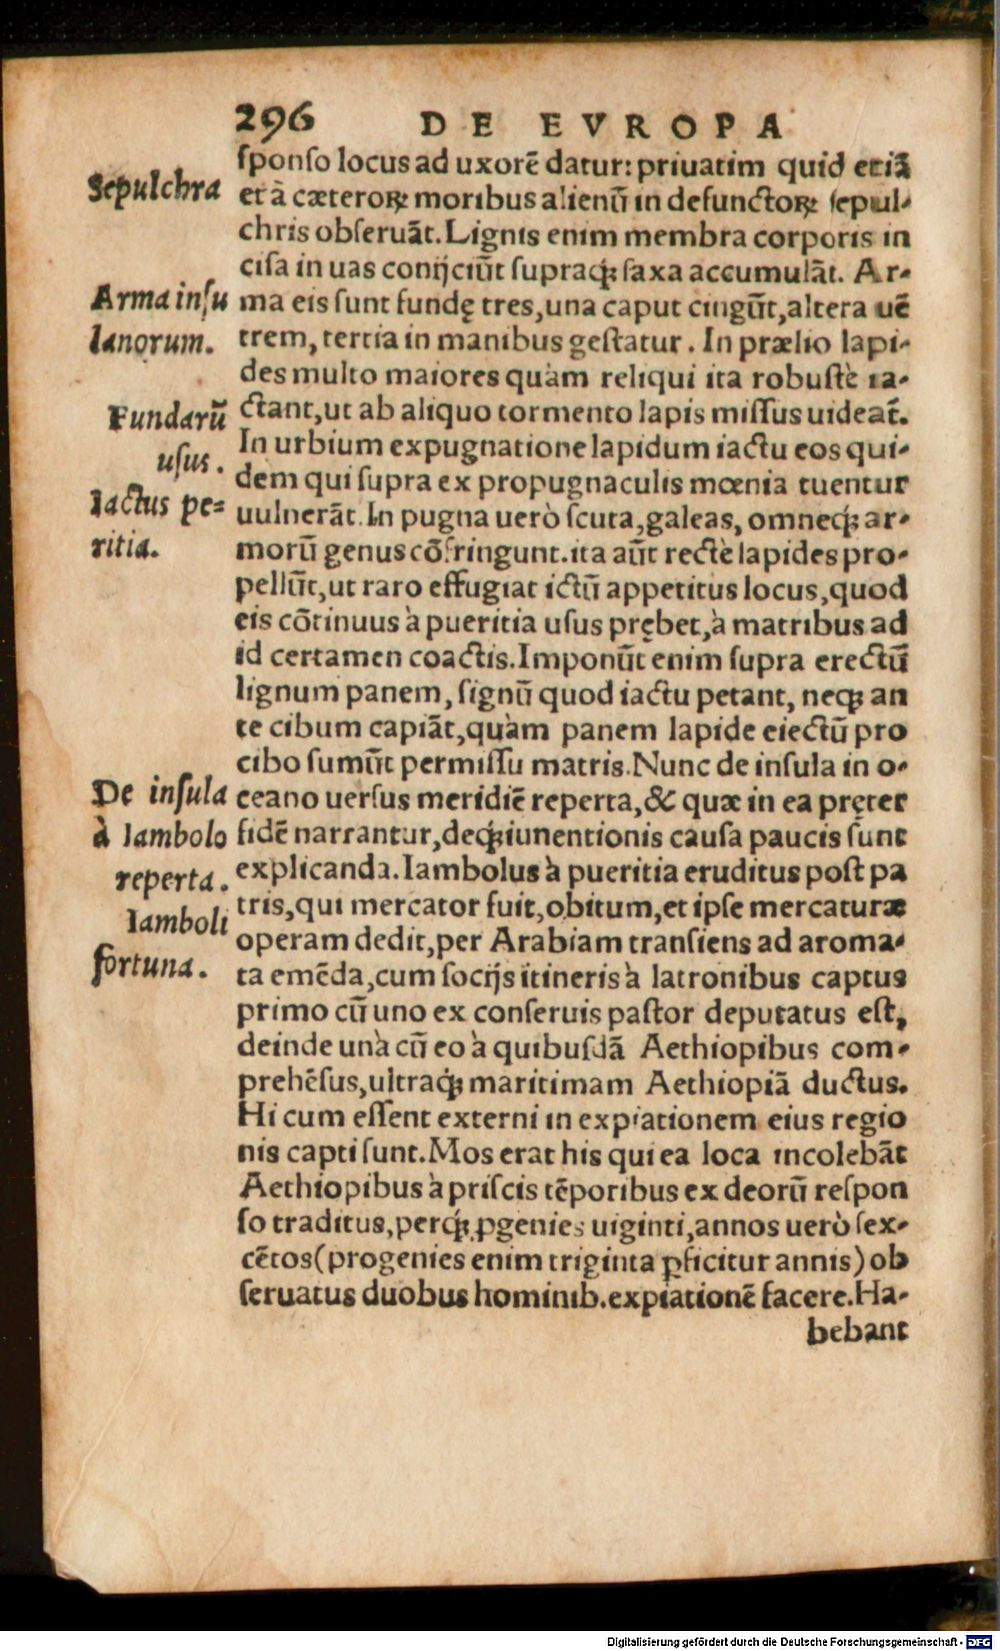 296 DE EVROPA
sponso locus ad uxorẽ datur: priuatim quid etiã
Sepulchra
et à cæterorꝝ moribus alienũ in defunctorꝝ sepul-
chris obseruãt. Lignis enim membra corporis in
cisa in uas conijciũt supraqꝫ saxa accumulãt. Ar-
Arma insu
ma eis sunt fundę tres, una caput cingũt, altera uẽ
lanorum.
trem, tertia in manibus gestatur. In prælio lapi-
des multo maiores quàm reliqui ita robustè ia-
Fundarũ
ctant, ut ab aliquo tormento lapis missus uideat̃.
usus.
In urbium expugnatione lapidum iactu eos qui-
dem qui supra ex propugnaculis mœnia tuentur
Iactus pe=
uulnerãt. In pugna uerò scuta, galeas, omneqꝫ ar-
ritia.
morũ genus cõfringunt. ita aũt rectè lapides pro-
pellũt, ut raro effugiat ictũ appetitus locus, quod
eis cõtinuus à pueritia usus prębet, à matribus ad
id certamen coactis. Imponũt enim supra erectũ
lignum panem, signũ quod iactu petant, neqꝫ an
te cibum capiãt, quàm panem lapide eiectũ pro
cibo sumũt permissu matris. Nunc de insula in o-
De insula
ceano uersus meridiẽ reperta, & quæ in ea pręter
à Iambolo
fidẽ narrantur, deqꝫ iunentionis causa paucis sunt
reperta.
explicanda. Iambolus à pueritia eruditus post pa
Iamboli
tris, qui mercator fuit, obitum, et ipse mercaturæ
fortuna.
operam dedit, per Arabiam transiens ad aroma-
ta emẽda, cum socijs itineris à latronibus captus
primo cũ uno ex conseruis pastor deputatus est,
deinde unà cũ eo à quibusdã Aethiopibus com-
prehẽsus, ultraqꝫ maritimam Aethiopiã ductus.
Hi cum essent externi in expiationem eius regio
nis capti sunt. Mos erat his qui ea loca incolebãt
Aethiopibus à priscis tẽporibus ex deorũ respon
so traditus, perqꝫ ꝓgenies uiginti, annos uerò sex-
cẽtos (progenies enim triginta ꝑficitur annis) ob
seruatus duobus hominib. expiationẽ facere. Ha-
bebant
Digitalisierung gefördert durch die Deutsche Forschungsgemeinschaft - DFG